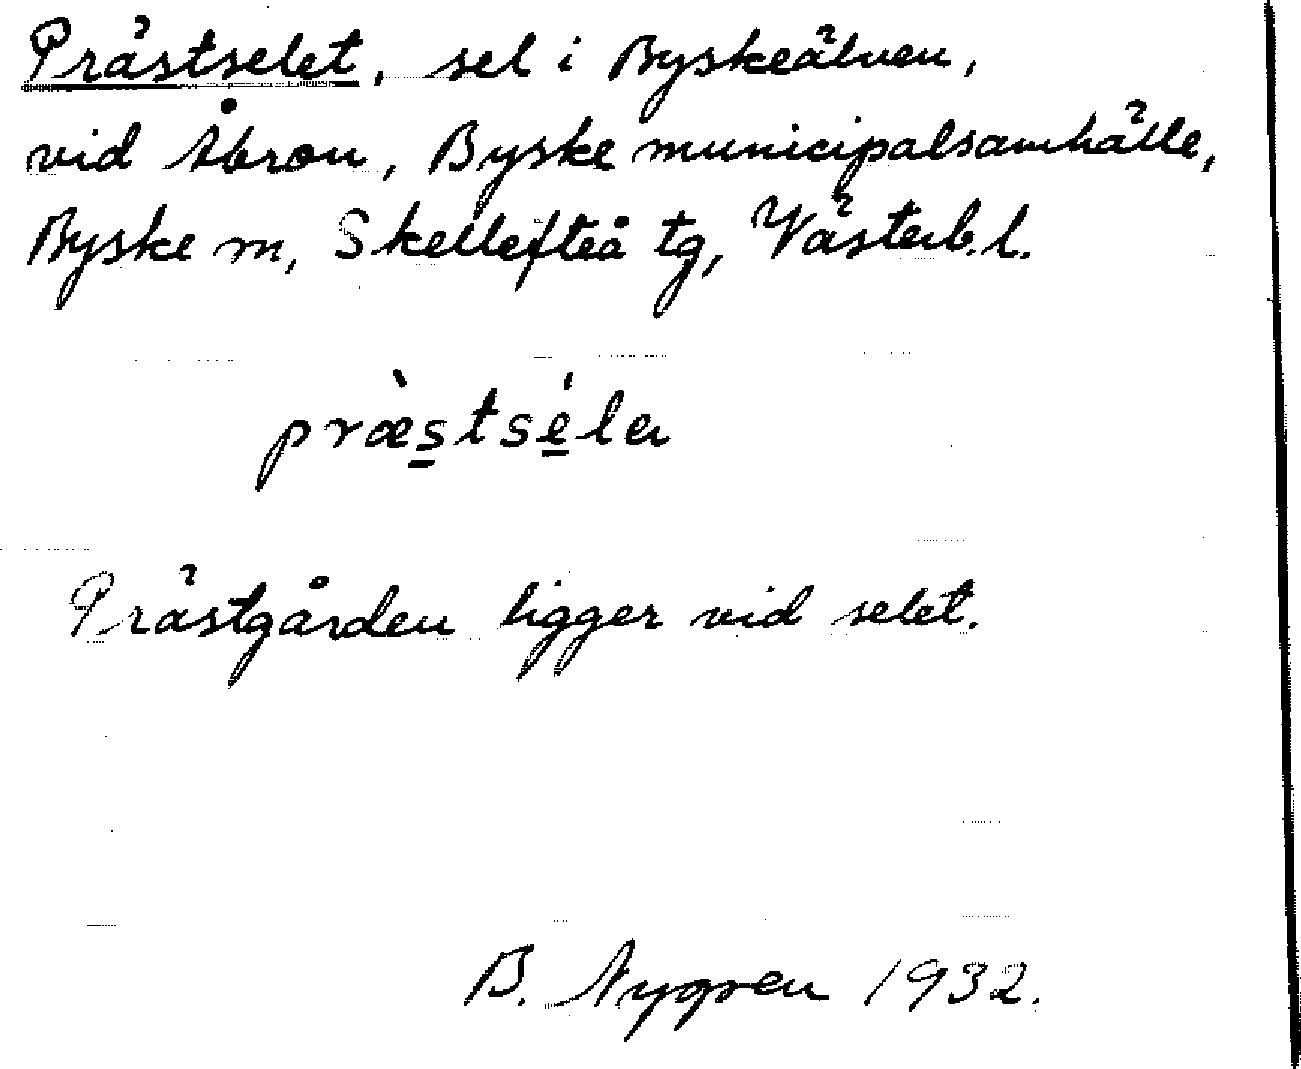 Prästselet, sel i Byskeälven,
vid Åbron, Byske municipalsamhälle,
Byske m, Skellefteå tg, Västerb. l.
præ̀s̲tsé̲la
Prästgården ligger vid selet.
B. Nygren 1932.